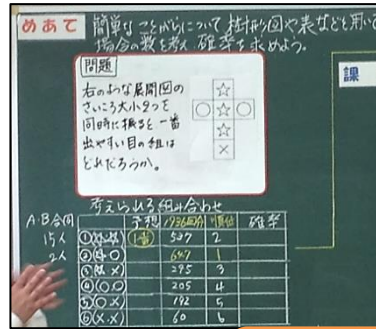 めあて 簡単なことがらについて樹形図や表などを用いて
場合の数を考え、確率を求めよう。
問題
右のような展開図の
さいころ大小2つを
同時に振ると、一番
出やすい目の組は
どれだろうか。
☆
○☆○
☆
×
課
考えられる組み合わせ
A・B合同 予想 1936回分 順位 確率
15人 ①(☆,☆) 1番 537 2
2人 ②(☆,○) 647 1
③(☆,×) 295 3
④(○,○) 205 4
⑤(○,×) 192 5
⑥(×,×) 60 6